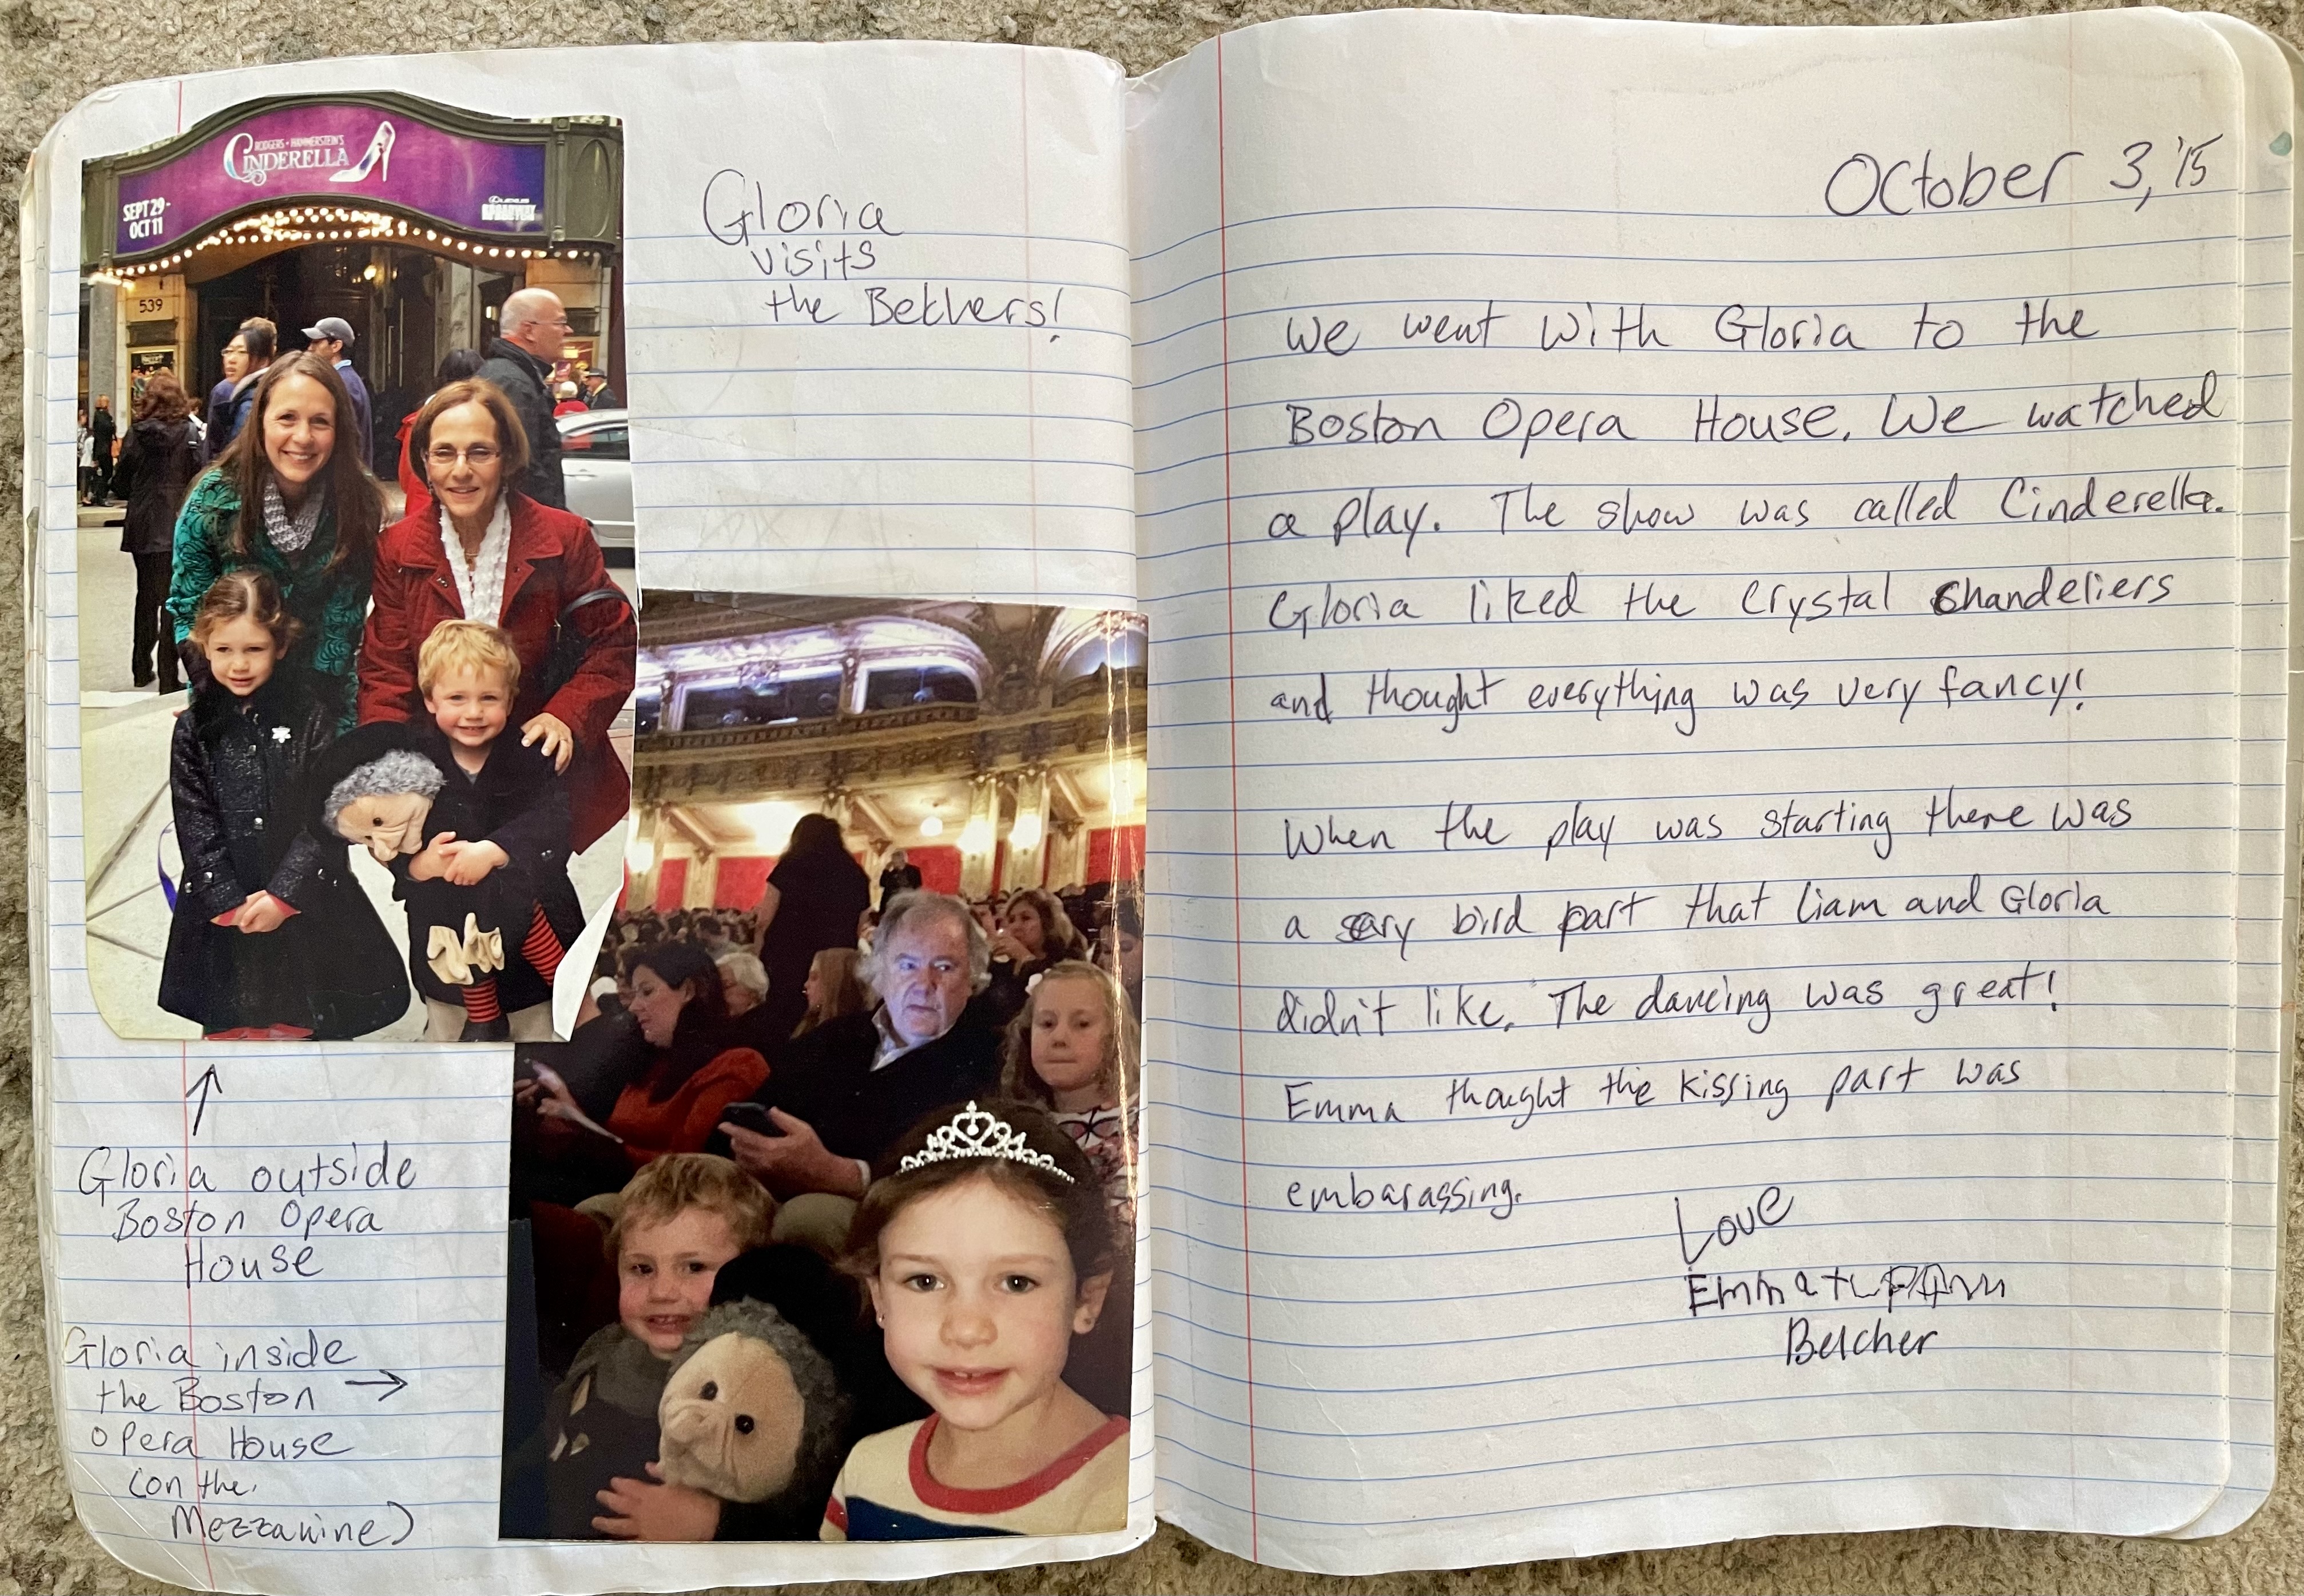 RODGERS + HAMMERSTEIN'S
CINDERELLA
SEPT 29-
OCT 11
LEXUS
BROADWAY
539
Gloria
visits
the Belchers!
Gloria outside
Boston Opera
House
Gloria inside
the Boston
Opera House
(on the
Mezzanine)
October 3, '15
We went with Gloria to the
Boston Opera House. We watched
a play. The show was called Cinderella.
Gloria liked the Crystal Chandeliers
and thought everything was very fancy!
When the play was starting there was
a scary bird part that Liam and Gloria
didn't like. The dancing was great!
Emma thought the kissing part was
embarassing.
Love
Emma +
Belcher